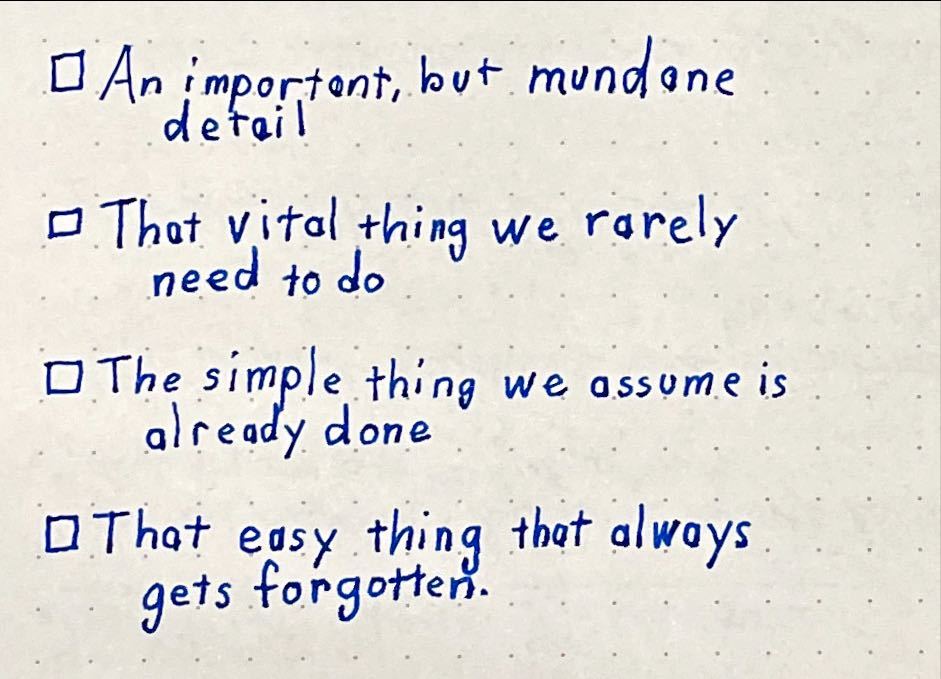 An important, but mundane
detail
That vital thing we rarely
need to do
The simple thing we assume is
already done
That easy thing that always
gets forgotten.